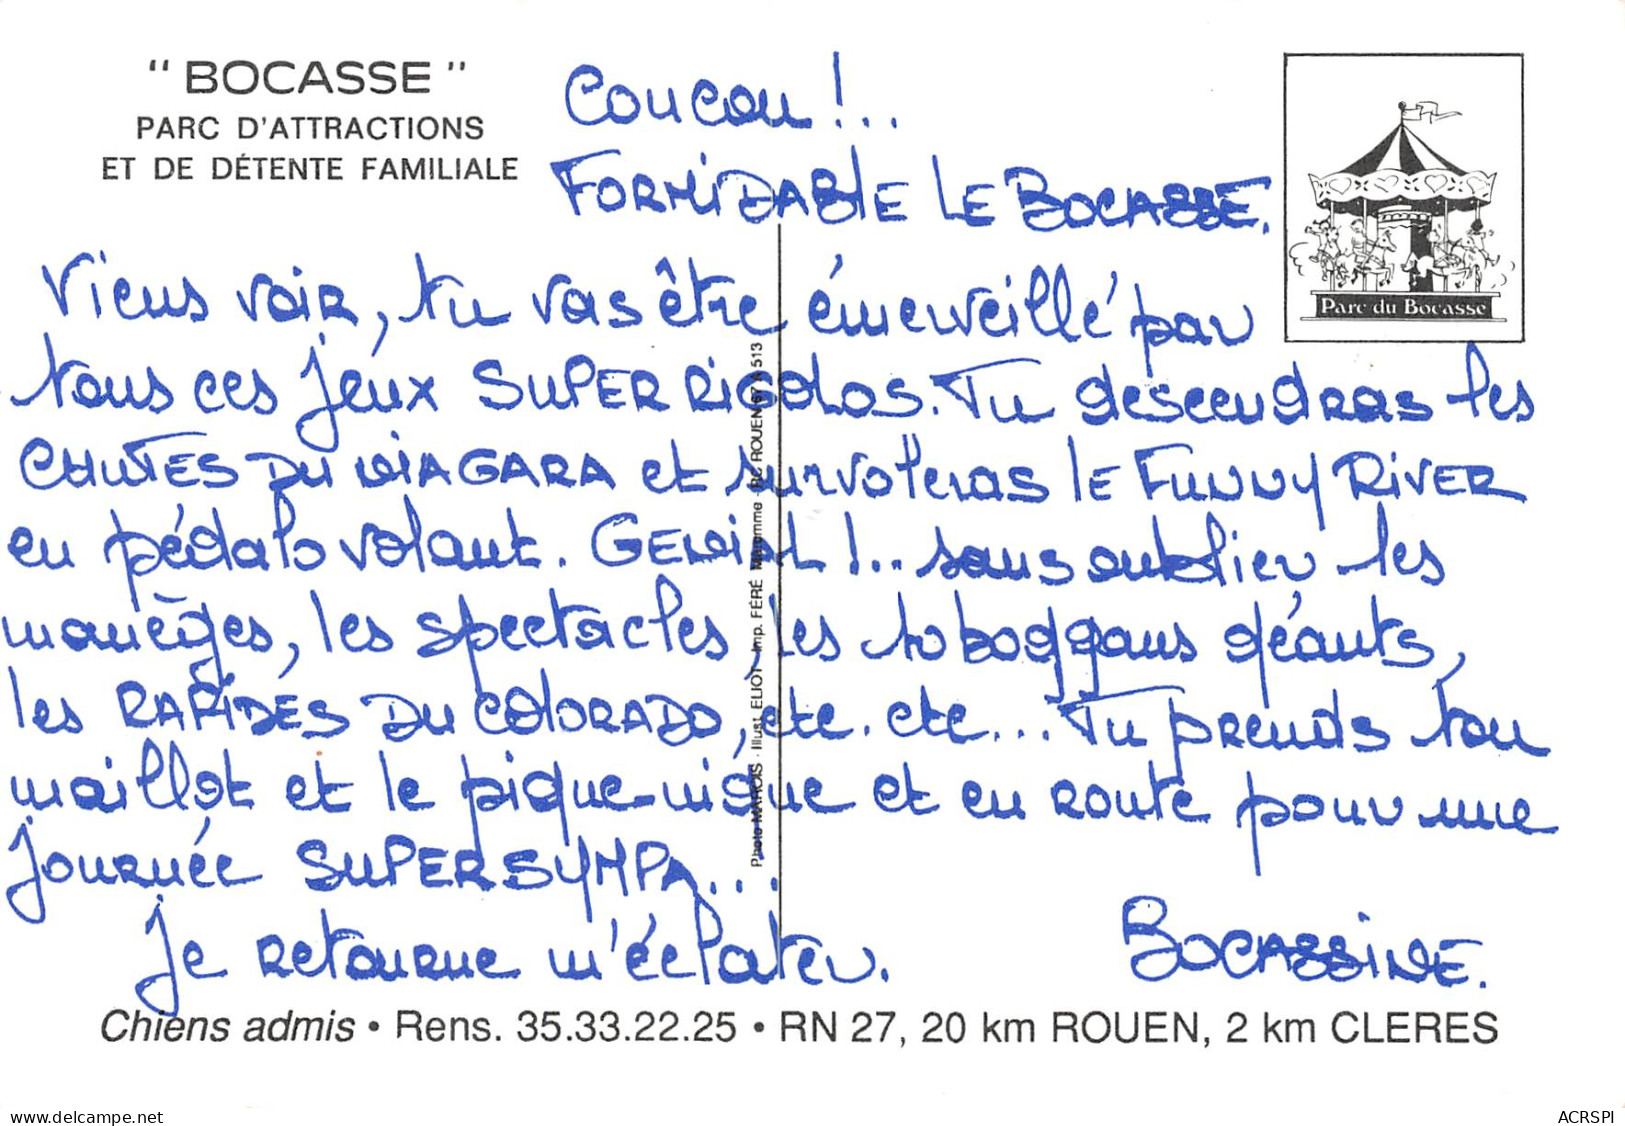 " BOCASSE "
PARC D'ATTRACTIONS
ET DE DÉTENTE FAMILIALE
Coucou !..
FORMIDABLE LE BOCASSE.
Parc du Bocasse
Viens voir, tu vas être émerveillé par
tous ces jeux SUPER RIGOLOS. Tu descendras les
CHUTES DU NIAGARA et survoleras LE FUNNY RIVER
en pédalo volant. GENIAL !.. sans oublier les
manèges, les spectacles, les toboggans géants,
les RAPIDES DU COLORADO, etc. etc... Tu prends ton
maillot et le pique-nique et en route pour une
journée SUPER SYMPA...
Je retourne m'éclater.
BOCASSINE.
Photo MAROIS - Illust. ELIOT - Imp. FÉRÉ Maromme - RC ROUEN 67 A 513
Chiens admis • Rens. 35.33.22.25 • RN 27, 20 km ROUEN, 2 km CLERES
delcampe.net
ACRSPI